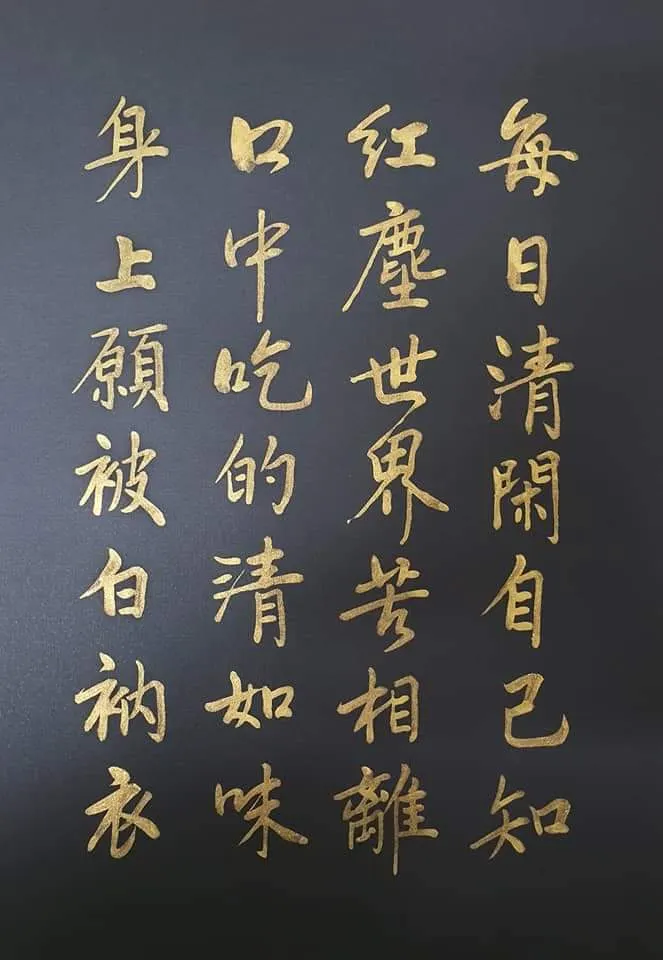 每日清閑自己知
紅塵世界苦相離
口中吃的清如味
身上願被白衲衣